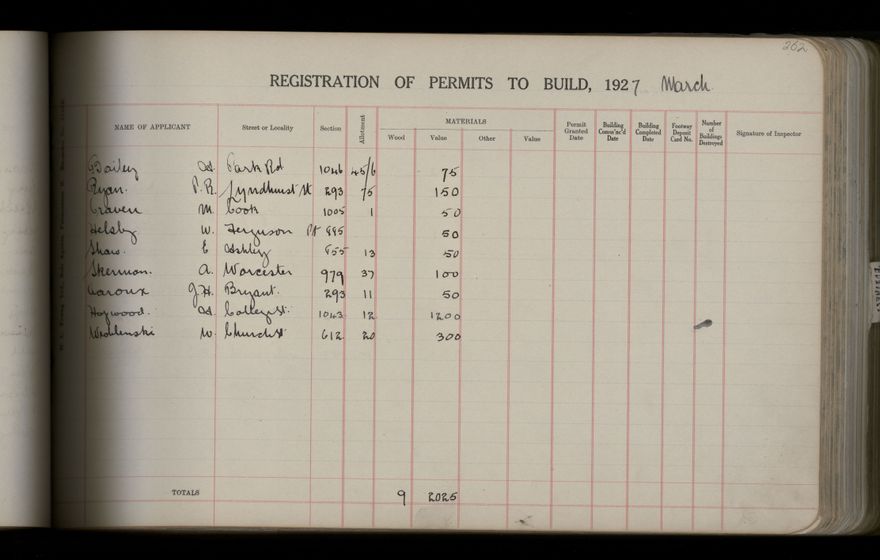 262
REGISTRATION OF PERMITS TO BUILD, 1927 March
NAME OF APPLICANT Street or Locality Section Allotment MATERIALS Permit Granted Date Building Comm'nc'd Date Building Completed Date Footway Deposit Card No. Number of Buildings Destroyed Signature of Inspector
Wood Value Other Value
Bailey Park Rd 1046 45/6 75
Ryan. P.R. Lyndhurst St 293 75 150
Craven M. Cook 1005 1 50
Helsby W. Ferguson Pt 50
Shaw. E Ashley 13 50
Skerman. A. Worcester 979 37 100
Laroux J.H. Bryant. 293 11 50
Haywood. College St. 1043 12 1200
Wroblenski W. Church St 612 20 300
TOTALS 9 2025